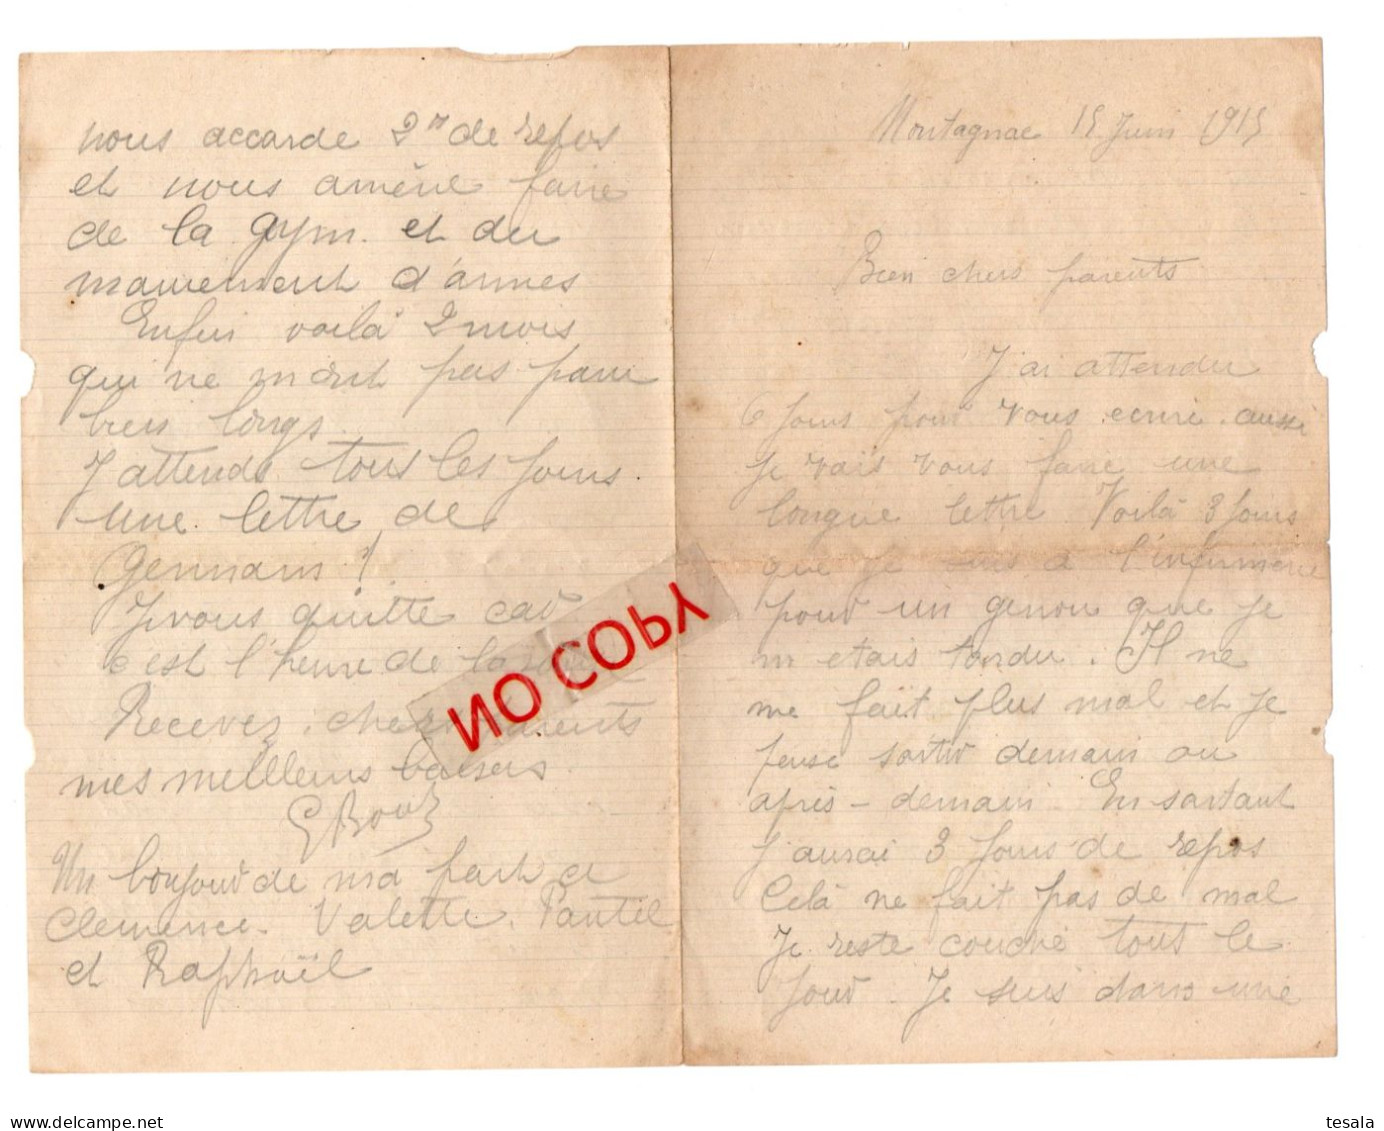 Montagnac 15 Juin 1915
Bien chers parents
J'ai attendu
6 Jours pour vous ecrire. aussi
Je vais vous faire une
longue lettre Voilà 3 Jours
que je suis a l'infirmerie
pour un genou que je
m etais tordu. Il ne
me fait plus mal et je
pense sortir demain ou
après-demain En sortant
J aurai 3 Jours de repos
Celà ne fait pas de mal
Je reste couché tout le
Jour. Je suis dans une
nous accorde 2 de repos
et nous amène faire
de la gym. et du
maniement d'armes
Enfin voilà 2 mois
qui ne m'ont pas paru
bien longs
J attends tous les jours
une lettre de
Germain !
Je vous quitte car
c'est l'heure de la
Recevez chers parents
mes meilleurs baisers
Un bonjour de ma part a
Clemence. Valette. Pantel
et Raphaël
NO COPY
delcampe.net
tesala